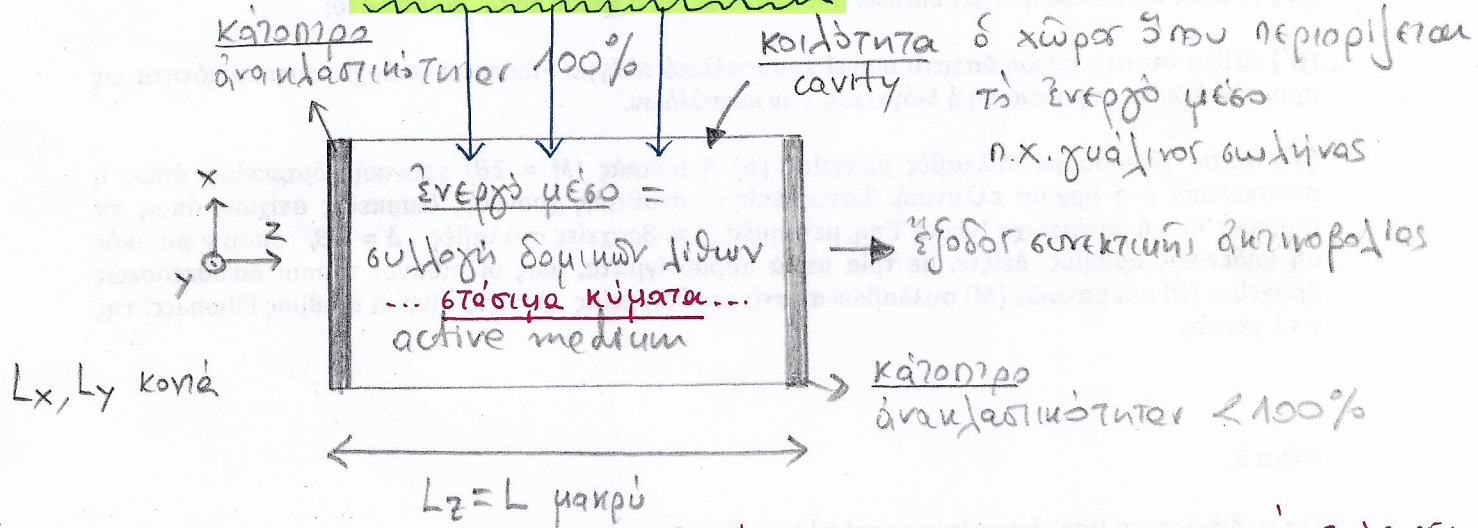 κάτοπτρο
ἀνακλαστικότητας 100%
κοιλότητα ὁ χῶρος ὅπου περιορίζεται
cavity
τὸ ἐνεργὸ μέσο
π.χ. γυάλινος σωλήνας
ἐνεργὸ μέσο =
συλλογὴ δομικῶν λίθων
...στάσιμα κύματα...
active medium
x
z
y
ἔξοδος συνεκτικῆς ἀκτινοβολίας
Lx, Ly κοντά
κάτοπτρο
ἀνακλαστικότητας < 100%
Lz = L μακρύ